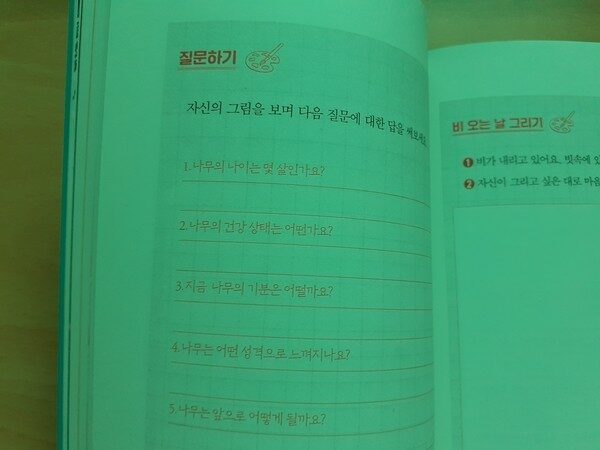 질문하기
자신의 그림을 보며 다음 질문에 대한 답을 써보세요
1.나무의 나이는 몇 살인가요?
2.나무의 건강 상태는 어떤가요?
3.지금 나무의 기분은 어떨까요?
4.나무는 어떤 성격으로 느껴지나요?
5.나무는 앞으로 어떻게 될까요?
비 오는 날 그리기
❶ 비가 내리고 있어요. 빗속에 있
❷ 자신이 그리고 싶은 대로 마음